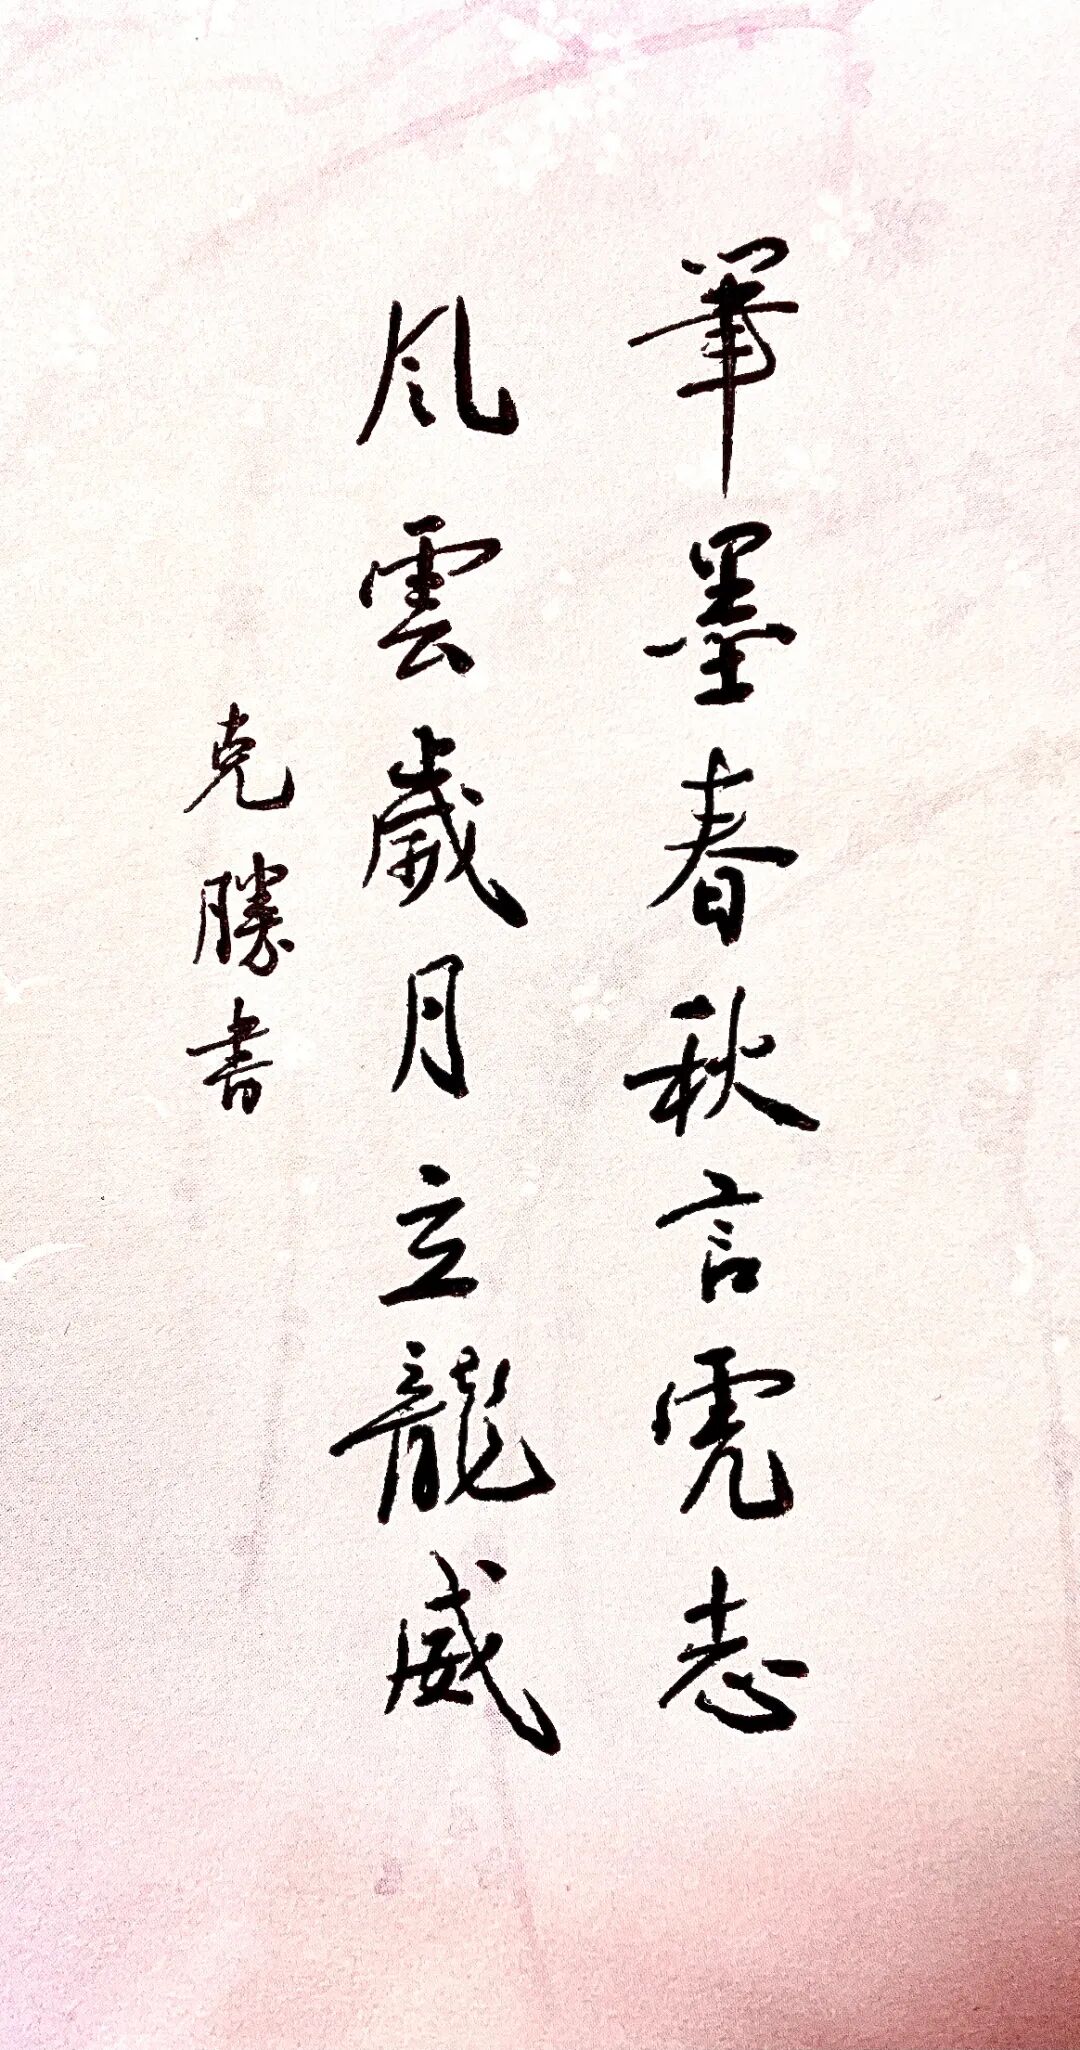 筆墨春秋言虎志
風雲歲月立龍威
克勝書